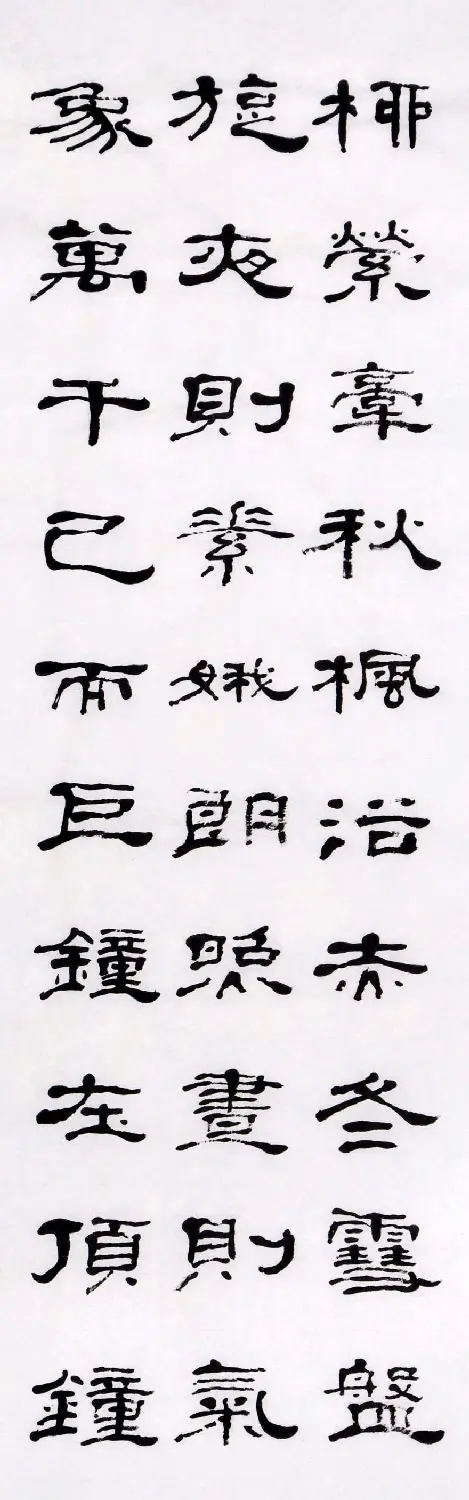 柳縈秋楓赤冬雪盤
旋夜則素娥朗照晝則氣
象萬千已而巨鐘在頂鐘